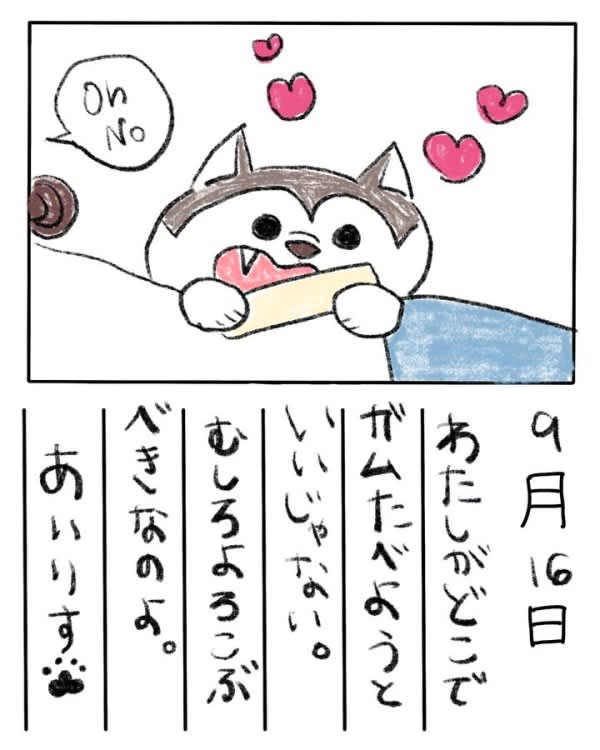 Oh
No
9月16日
わたしがどこで
ガムたべようと
いいじゃない。
むしろよろこぶ
べきなのよ。
あいりす